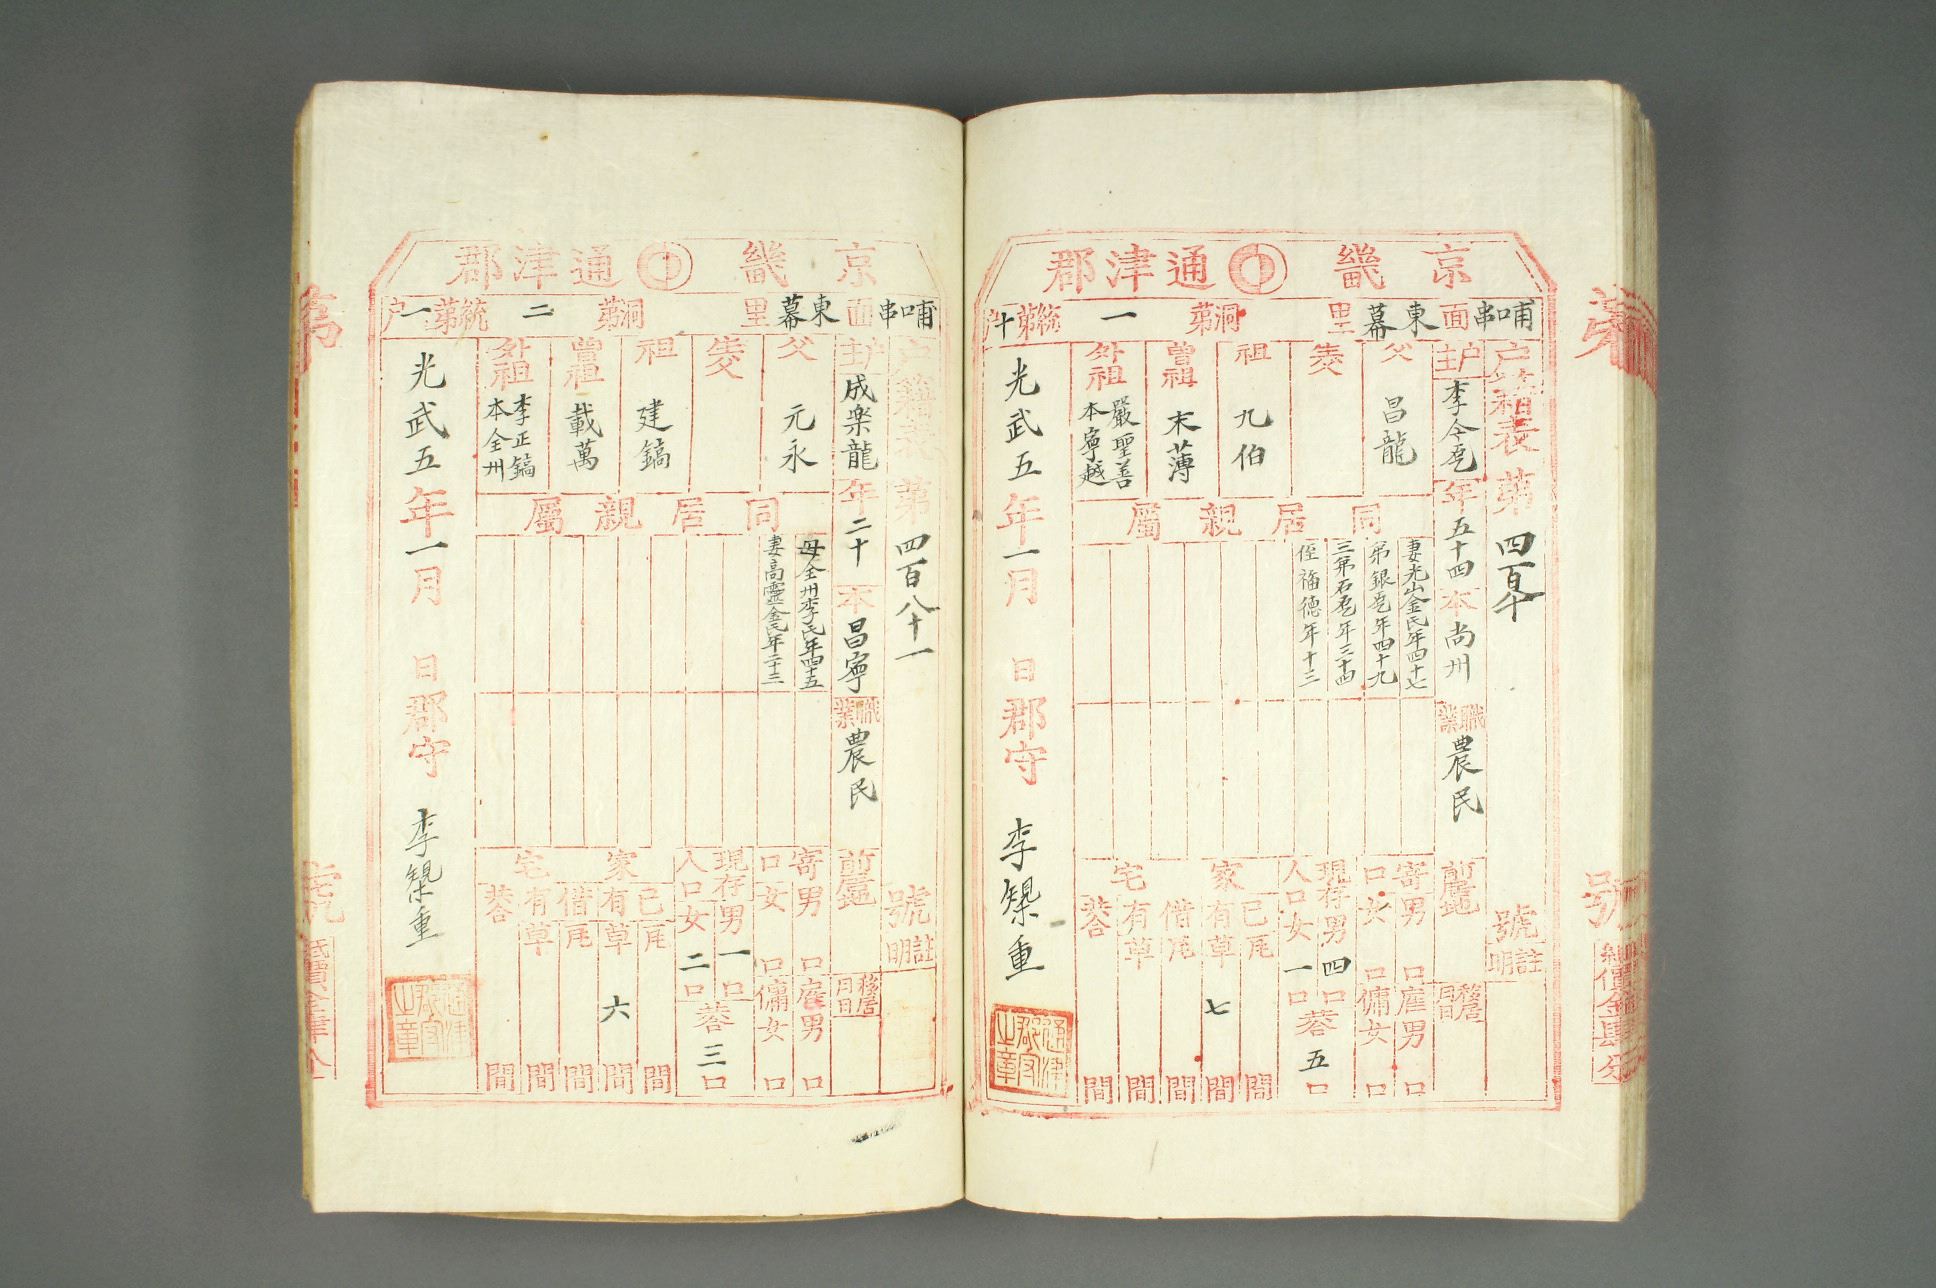 京畿 通津郡
哺串面 東幕里 洞第一統第十户
户籍表第四百八十號
户主 李今乭 年五十四 本尚州 職業 農民
父 昌龍
生父
祖 九伯
曾祖 末薄
外祖 嚴聖善 本寧越
同居親屬
妻光山金氏年四十七
弟銀乭年四十九
三弟石乭年三十四
侄福德年十三
註明
前居地
移居月日
寄口 男 口 女 口
雇男 口 傭女 口
現存人口 男四口 女一口 共五口
家宅
己有 瓦 間 草 七 間
借有 瓦 間 草 間
共 間
光武五年一月 日 郡守 李榘重
通津郡守之章
京畿 通津郡
哺串面 東幕里 洞第二統第一户
户籍表第四百八十一號
户主 成樂龍 年二十 本昌寧 職業 農民
父 元永
生父
祖 建鎬
曾祖 載萬
外祖 李正鎬 本全州
同居親屬
母全州李氏年四十五
妻高靈金氏年二十三
註明
前居地
移居月日
寄口 男 口 女 口
雇男 口 傭女 口
現存人口 男一口 女二口 共三口
家宅
己有 瓦 間 草 六 間
借有 瓦 間 草 間
共 間
光武五年一月 日 郡守 李榘重
通津郡守之章